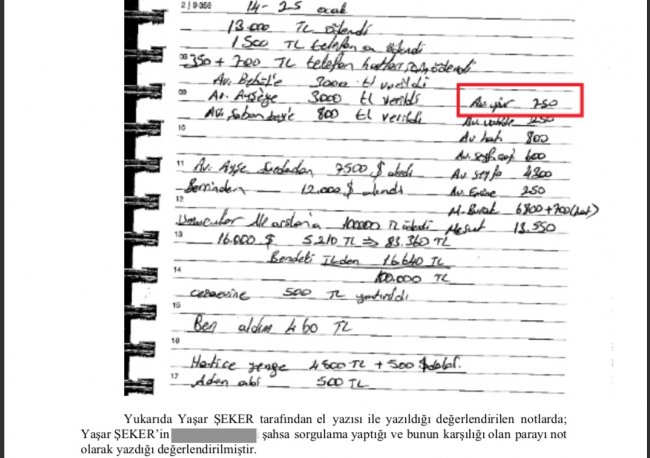 2 | 9-356
14 - 25 ocak
13.000 TL ödendi
1500 TL telefona ödendi
08 350 + 700 TL telefon hatları için ödendi
Av. Behlül'e 3000 tl verildi
09 Av. Ayşeye 3000 tl verildi
Av. Şaban bey'e 800 tl verildi
Av. 750
Av. 250
10 Av. hatı 800
Av. 600
11 Av. Ayşe 7500 $ alındı
Av. seyfo 4300
12.000 $ alındı
Av. Emine 250
12
M. Burak 6800 + 700 (hat)
100000 TL ödendi
Mesut 13.550
13 16.000 $ 5.210 TL ⇒ 83.360 TL
Bendeki TLden 16640 TL
14 100.000 TL
cezaevine 500 TL yatırıldı
15
Ben aldım 460 TL
16
Hatice yenge 4500 TL + 500 $
17 Adem abi 500 TL
Yukarıda Yaşar ŞEKER tarafından el yazısı ile yazıldığı değerlendirilen notlarda;
Yaşar ŞEKER'in şahsa sorgulama yaptığı ve bunun karşılığı olan parayı not
olarak yazdığı değerlendirilmiştir.